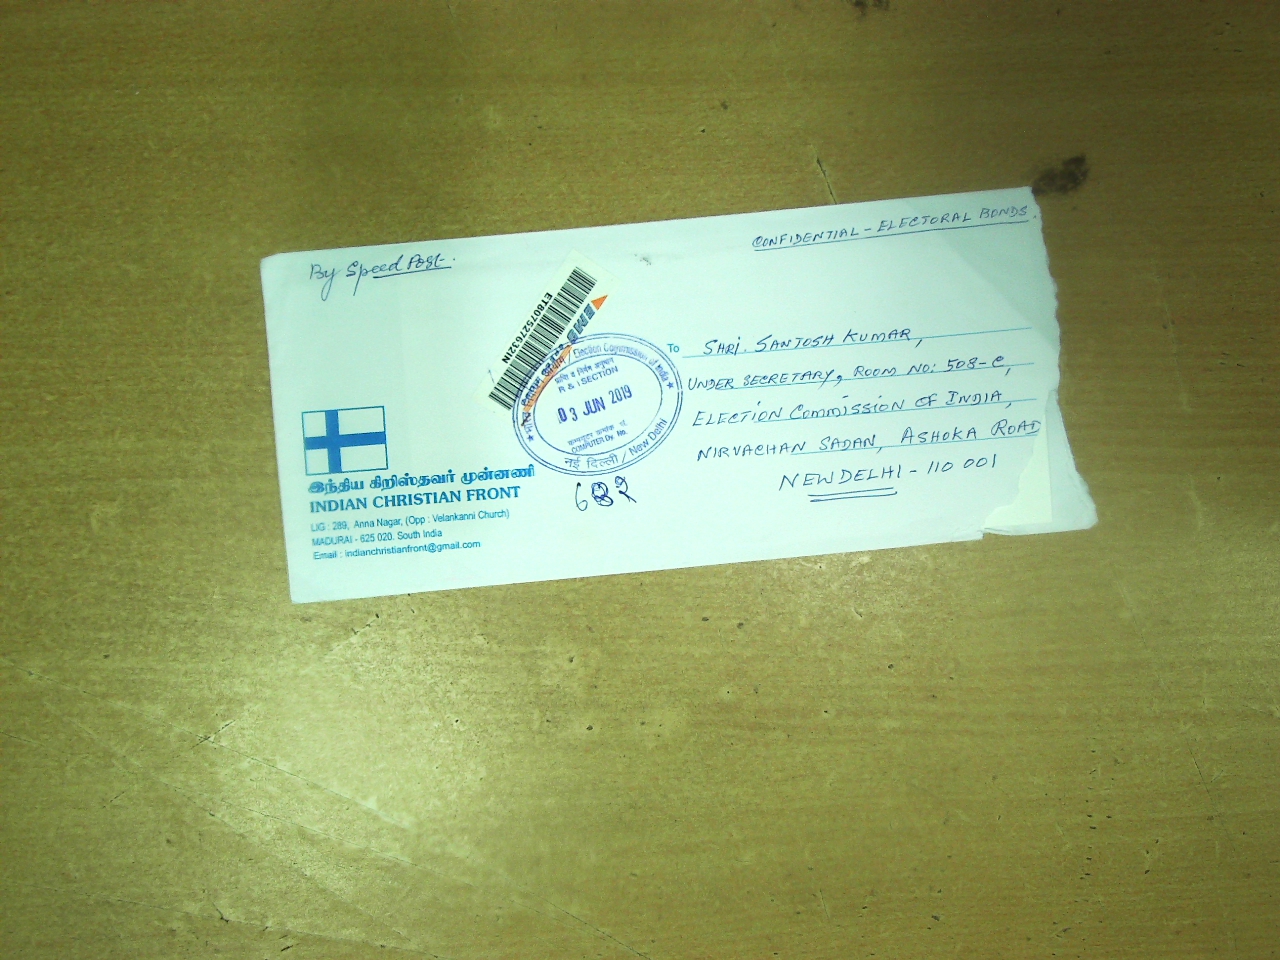 By Speed Post.
CONFIDENTIAL - ELECTORAL BONDS.
ET807527632IN
EMS
Election Commission of India
प्राप्ति व निर्गम अनुभाग
R & I SECTION
03 JUN 2019
COMPUTER Dy. No.
नई दिल्ली / New Delhi
682
To
SHRI. SANTOSH KUMAR,
UNDER SECRETARY, ROOM NO: 508-C,
ELECTION COMMISSION OF INDIA,
NIRVACHAN SADAN, ASHOKA ROAD
NEW DELHI - 110 001
இந்திய கிறிஸ்தவர் முன்னணி
INDIAN CHRISTIAN FRONT
LIG : 289, Anna Nagar, (Opp : Velankanni Church)
MADURAI - 625 020. South India
Email : indianchristianfront@gmail.com